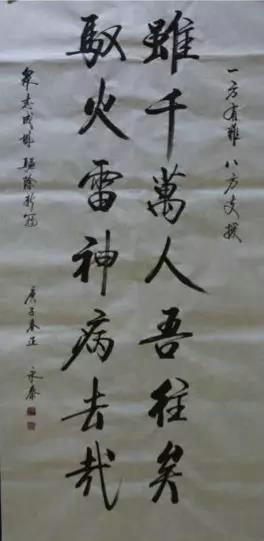 一方有难 八方支援
雖千萬人吾往矣
馭火雷神病去哉
众志成城 驱除新冠
庚子春正 永泰